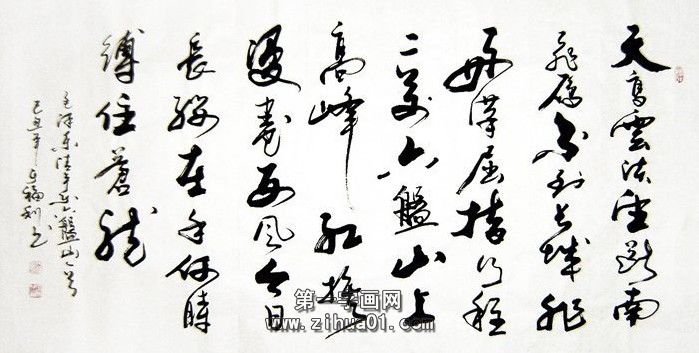 天高雲淡望断南
飛雁不到长城非
好漢屈指行程
二萬六盤山上
高峰红旗
漫卷西风今日
長缨在手何時
縛住蒼龙
毛泽东清平乐六盤山一首
己丑年福利书
第一字画网
www.zihua01.com